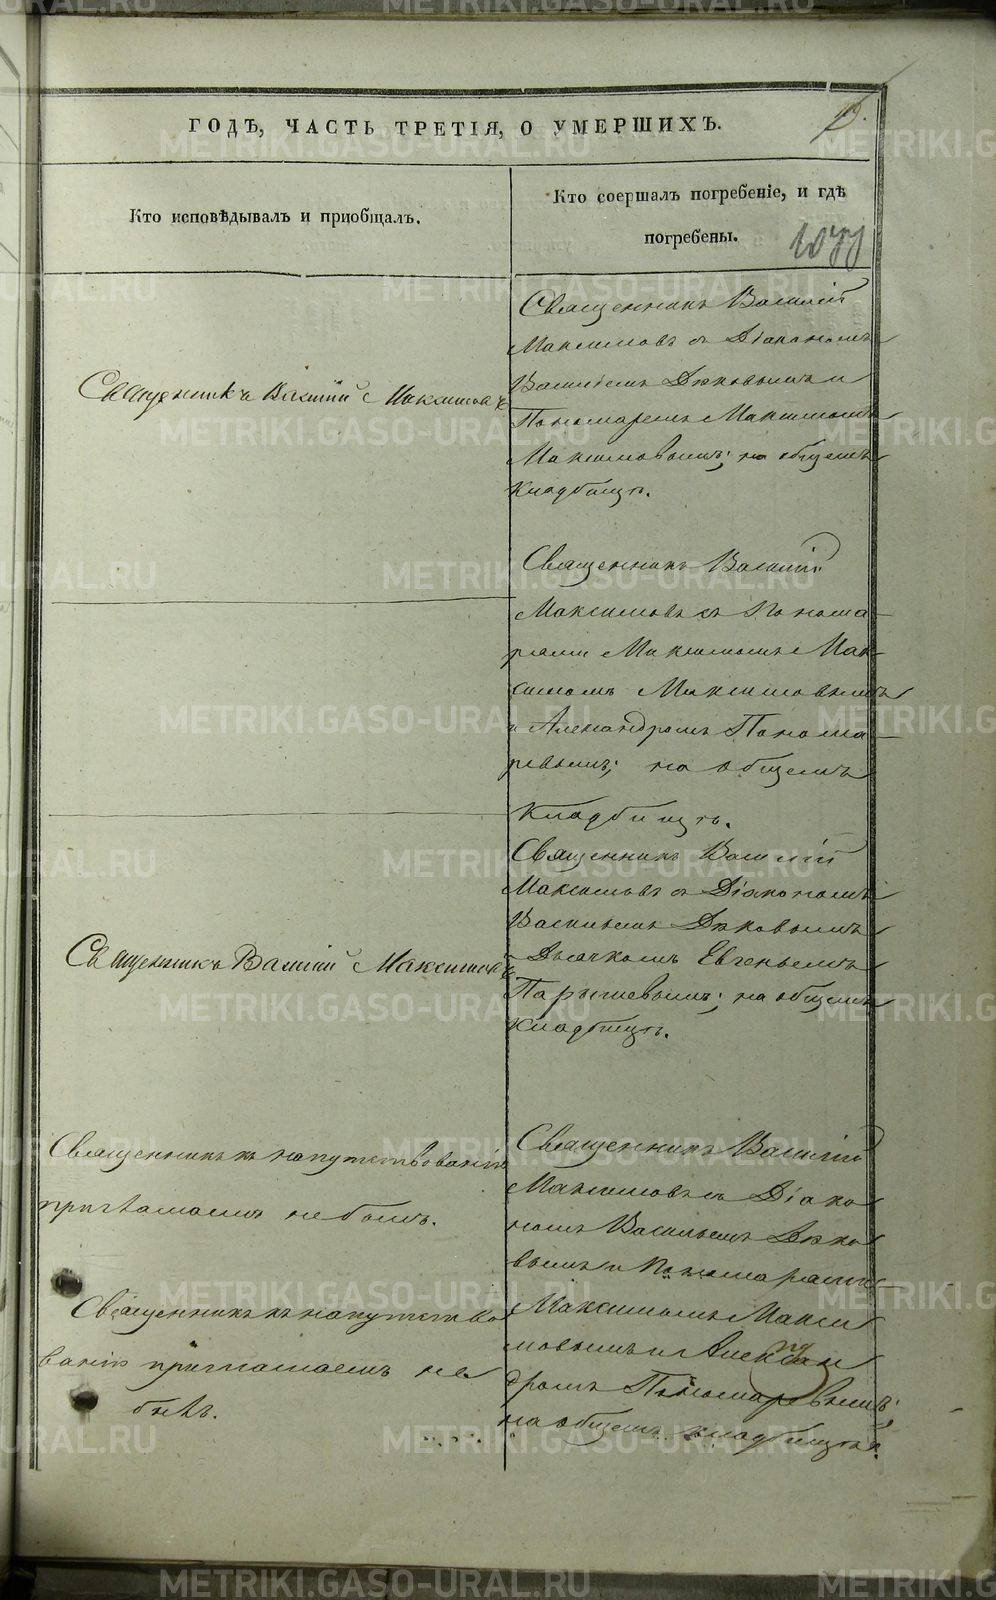 ГОДЪ, ЧАСТЬ ТРЕТІЯ, О УМЕРШИХЪ.
Кто исповѣдывалъ и приобщалъ.
Кто соершалъ погребеніе, и гдѣ
погребены.
Священникъ Василій Максимовъ
Священникъ Василій
Максимовъ съ Діакономъ
Васильемъ Дѣковымъ и
Пономаремъ Максимомъ
Максимовымъ; на общемъ
кладбищѣ.
Священникъ Василій
Максимовъ съ Понома-
рями Максимомъ Мак-
симомъ Максимовымъ
и Александромъ Понома-
ревымъ; на общемъ
кладбищѣ.
Священникъ Василій Максимовъ
Священникъ Василій
Максимовъ съ Діакономъ
Васильемъ Дѣковымъ
и Дьячкомъ Евгеньемъ
Парышевымъ; на общемъ
кладбищѣ.
Священникъ къ напутствованію
приглашаемъ не былъ.
Священникъ къ напутство
ванію приглашаемъ не
былъ.
Священникъ Василій
Максимовъ съ Діако
номъ Васильемъ Дѣко
вымъ и Пономарями
Максимомъ Макси
мовымъ и Алексан
дромъ Пономаревымъ;
на общемъ кладбищѣ.
METRIKI.GASO-URAL.RU